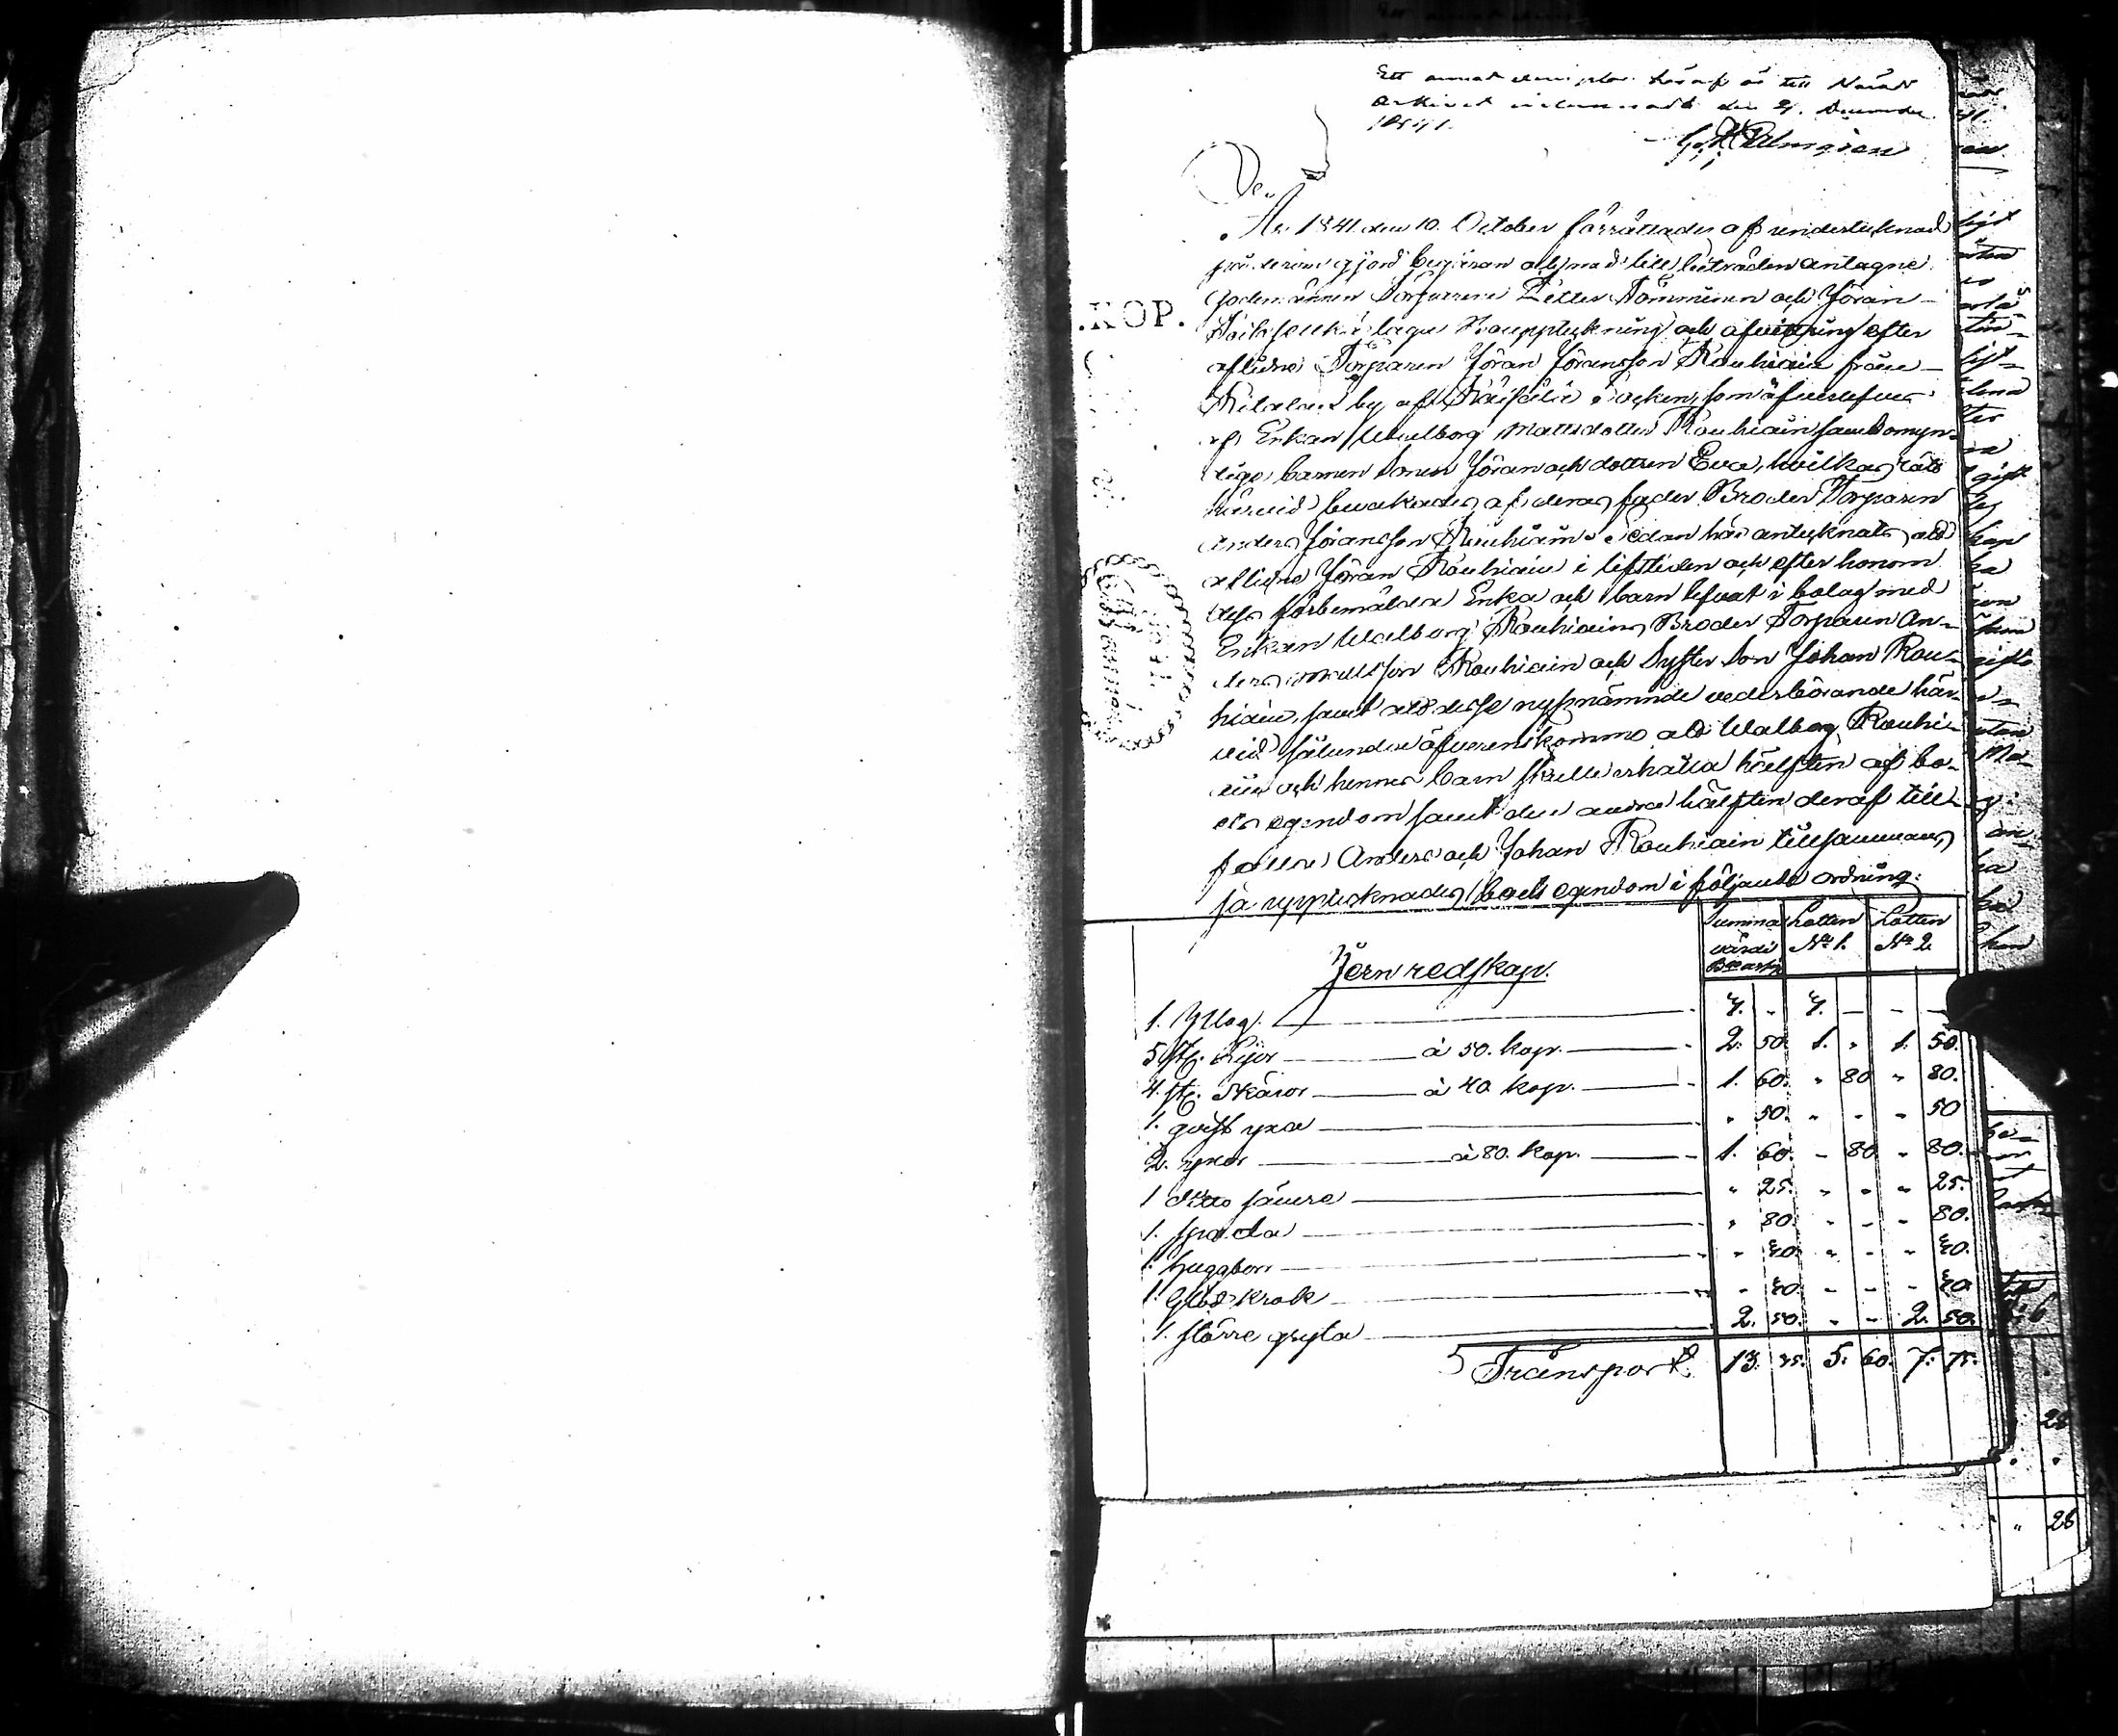 Ett annat exemplar häraf är till Härads
arkivet inlemnadt den 4. December
1841.
År 1841 den 10. October förrättades af undertecknad
på derom gjord begäran och med till biträden antagne
Godemännen Torparene Petter Tömminen och Jöran
laga Bouppteckning och afvittring efter
aflidne Torparen Jöran Jöransson Rouhiain från
by af Räisälä Socken, som äfverlefves
af Enkan Walborg Mattsdotter Rouhiain samt omyn-
dige barnen Sonen Jöran och dottren Eva, hvilkas rätt
härvid bevakades af deras fader Broder Torparen
Anders Jöransson Rouhiain. Sedan här antecknats att
aflidne Jöran Rouhiain i lifstiden och efter honom
dess förbemälda Enka och barn lefvat i bolag med
Enkan Walborg Rouhiains Broder Torparen An-
ders Mattsson Rouhiain och Syster Son Johan Rou-
hiain, samt att desse nyssnämnde vederbörande här-
vid sålunda öfverenskommo att Walborg Rouhi-
ain och hennes barn skulle erhålla hälften af bo-
ets egendom samt den andra hälften deraf till-
falla Anders och Johan Rouhiain tillsammans,
så upptecknades boets egendom i följande ordning:
KOP.
Summa värde Lotten Nº 1. Lotten Nº 2.
Jern redskap.
1. Plog 4. - 4. - - -
5 st. Lijor à 50. kop. 2. 50. 1. " 1. 50.
4. st. Skäror à 40. kop. 1. 60. " 80 " 80.
1. yxa " 50. " - " 50
2. yxor à 80. kop. 1. 60. - 80 " 80.
1 ditto sämre " 25. " " " 25.
1. spada " 80. " - - 80.
1. huggborr " 40. " - " 40.
1. Glödkrok " 40. - - - 40
1. större gryta 2. 50. " - 2. 50.
Transport 13. 35. 5. 60. 7. 75.